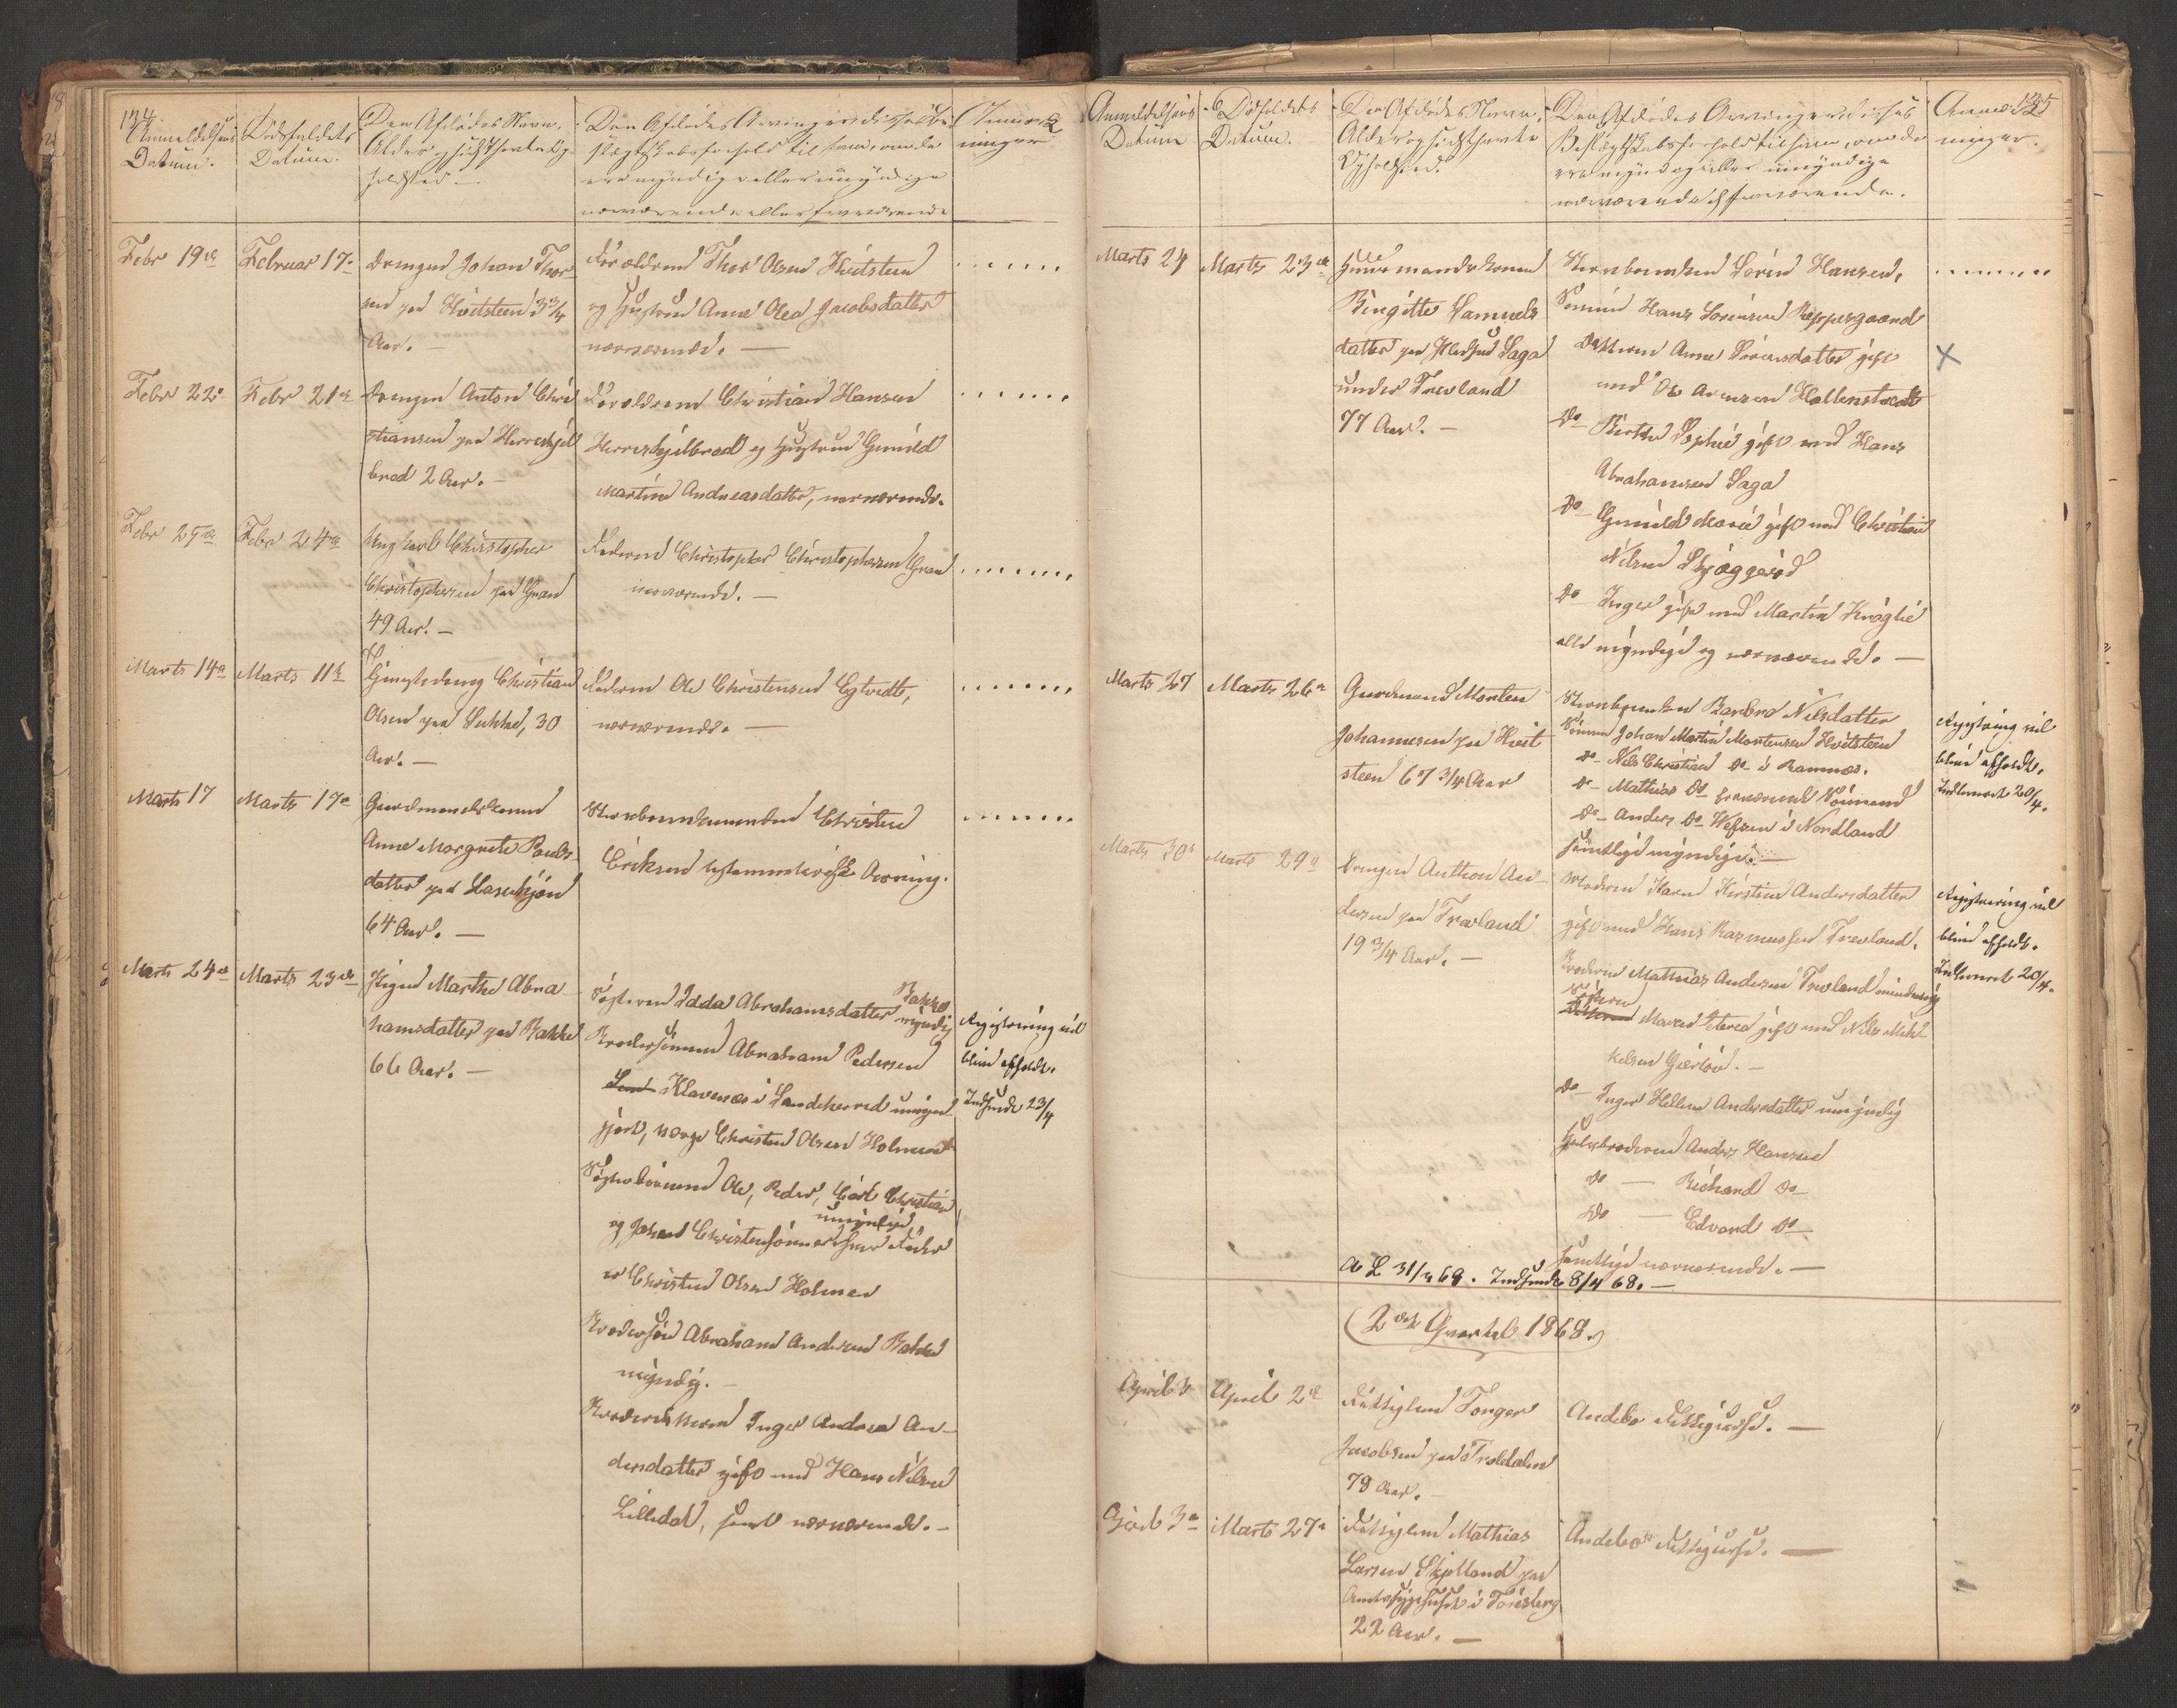 134
Anmeldelsens
Datum.
Dødsfaldets
Datum.
Den Afdødes Navn,
Alder og sidst havte Op-
holdsted. —
Den Afdødes Arvinger disses
Slægtskabsforhold til ham, om de
ere myndige eller umyndige
nærværende eller fraværende
Anmærk-
ninger
Febr 19de
Februar 17.
Drengen Johan Thor-
sen paa Hvitsteen 3 3/4
Aar. —
Forældrene Thor Olsen Hvitsteen
og Hustrue Anne Olea Jacobsdatter
nærværende. —
. . . . . .
Febr 22.
Febr 21de
Drengen Anton Chri-
stiansen paa Herreskjel-
brod 2 Aar. —
Forældrene Christian Hansen
Herreskjelbrod og Hustrue Gunild
Martine Andreasdatter, nærværende.
. . . . . .
Febr 25de
Febr 24de
Ungkarl Christopher
Christophersen paa Gran
49 Aar. —
Faderen Christopher Christophersen Gran
nærværende. —
. . . . . .
Marts 14de
Marts 11te
Gjengsdreng Christian
Olsen paa Sukke, 30
Aar. —
Faderen Ole Christensen Egtvedt,
nærværende. —
. . . . . .
Marts 17
Marts 17de
Gaardmandskonen
Anne Margrete Pouls-
datter paa Laseskjøn
64 Aar. —
Stervboenkemanden Christen
Eriksen testamentarisk Arving.
. . . . . .
Marts 24de
Marts 23de
Pigen Marthe Abra-
hamsdatter paa Bakke
66 Aar. —
Bakke
Søsteren Idda Abrahamsdatter myndig
Brodersønnen Abraham Pedersen
Klavenæs i Sandeherred umynd-
gjort, Værge Christen Olsen Holmen
Søsterbørnene Ole, Peder, Carl Christian
umyndige
og Johan Christensønner hvis Fader
er Christen Olsen Holmen
Brodersøn Abraham Andersen Bakke
myndig. —
Broderdatteren Inger Andrea An-
dersdatter gift med Hans Nilsen
Lilledal, samt nærværende. —
Registrering vil
blive afholdt.
Indsendt 23/4
135
Anmeldelsens
Datum
Dødsfaldets
Datum.
Den Afdødes Navn,
Alder og sidsthavte
Opholdsted.
Den Afdødes Arvinger disses
Beslægtskabsforhold til ham, om de
ere myndige eller umyndige
nærværende eller fraværende.
Anmærk-
ninger.
Marts 24
Marts 23de
Huusmandskonen
Birgitte Samuels-
datter paa Pladsen Saga
under Trevland
77 Aar. —
Stervboenkem Sørin Hansen,
Sønnen Hans Sørensen Reppesgaard
Datteren Anne Sørensdatter gift
med Ole Arensen Hallenstvedt
Do Berthe Sophie gift med Hans
Abrahamsen Saga
Do Gunild Marie gift med Christian
Nilsen Skjæggerød
Do Inger gift med Martin Kraglie
alle myndige og nærværende. —
. . . . . . .
X
Marts 27
Marts 26de
Gaardmand Morten
Johannesen paa Hvit-
steen 67 3/4 Aar
Stervboenken Barbro Nilsdatter
Sønnen Johan Martin Mortensen Hvitsteen
Do Nils Christian Do i Ramnæs.
Do Mathias Do fraværende Sømand
Do Anders Do Wefsen i Nordland
samtlige myndige. —
Registrering vil
blive afholdt.
Indkommet 20/4.
Marts 30.
Marts 29de
Drengen Anthon An-
dersen paa Trevland
19 3/4 Aar. —
Moderen Karen Kirstine Andersdatter
gift med Hans Rasmussen Trevland.
Broderen Mathias Andersen Trevland mindreaarig
Søsteren
Maren Petrea gift med Nils Mik-
kelsen Gjerløv. —
Do Inger Helene Andersdatter umyndig
Halvbroderen Anders Hansen
Do — Richard Do —
Do — Edvard Do —
samtlige nærværende. —
Registrering vil
blive afholdt.
Indkommet 20/4.
A L 31/3 68. Indsendt 8/4 68. —
(2det Qvartal 1868.)
April 3
April 2de
Fattiglem Tonger
Jacobsen paa Troldalen
79 Aar. —
Andebo Fattigkasse. —
April 3de
Marts 27.
Fattiglem Mathias
Larsen Skjelland paa
Amtssygehuset i Tønsberg
22 Aar. —
Andebo Fattigkasse. —